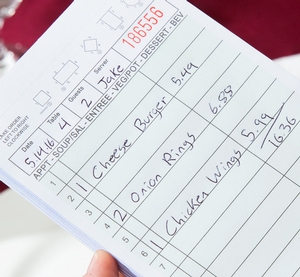 ORDER
LEFT TO RIGHT
CLOCKWISE
Date Table Guests Server 186556
5/14/16 4 2 Jake
APPT - SOUP/SAL - ENTREE - VEG/POT - DESSERT - BEV
1
2 1 Cheese Burger 5.49
3
4 2 Onion Rings 6.88
5
6 1 Chicken Wings 5.99
7 16.36